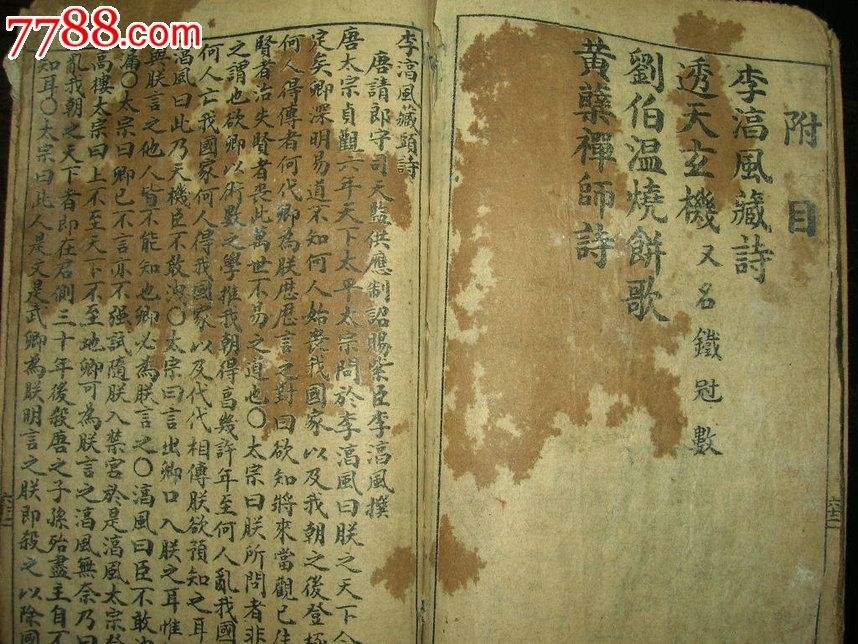 7788.com
附目
李湻風藏詩
透天玄機又名鐵冠數
劉伯温燒餅歌
黄蘗禪師詩
六十二
李湻風藏頭詩
唐請郎守司天監供應制詔賜紫臣李湻風撰
唐太宗貞觀六年天下太平太宗問於李湻風曰朕之天下今
定矣卿深明易道不知何人始喪我國家以及我朝之後登極
何人得傳者何代卿為朕歷歷言之對曰欲知將來當觀已往
賢者治失賢者喪此萬世不易之道也〇太宗曰朕所問者非
之謂也欲卿以術數之學推我朝得享幾許年至何人亂我國
何人亡我國家何人得我國家以及代代相傳朕欲預知之耳
湻風曰此乃天機臣不敢洩〇太宗曰言出卿口入朕之耳惟
無朕言之他人皆不能知也卿必為朕言之〇湻風曰臣不敢洩
漏〇太宗曰卿已不言亦不强試隨朕入禁宮於是湻風太宗登
高樓太宗曰上不至天下不至地卿可為朕言之湻風無奈乃曰
亂我朝之天下者即在君側三十年後殺唐之子孫殆盡主自不
知耳〇太宗曰此人是文是武卿為朕明言之朕即殺之以除國